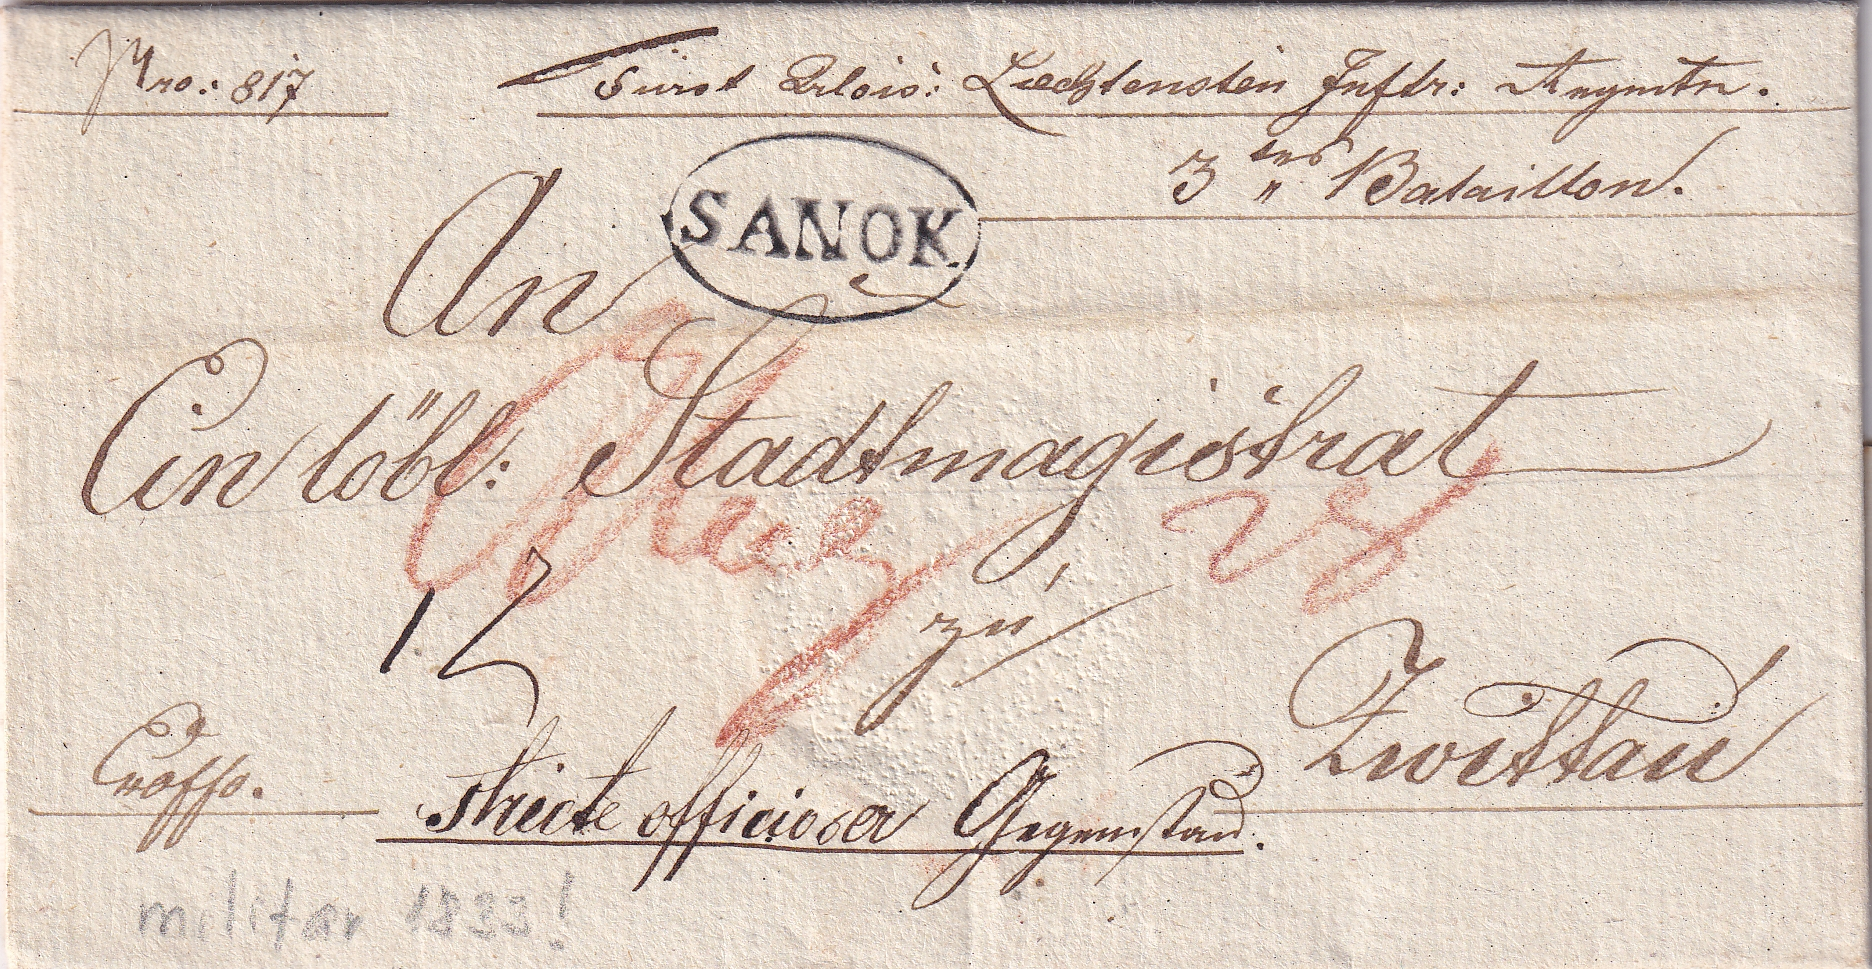 Nro.: 817
Fürst Alois: Liechtenstein Inftr: Regmtn.
3tes Bataillon.
SANOK
An
Ein löbl: Stadtmagistrat
28
12
zu
Zwittau
Exoffo.
stricte officioser Gegenstand.
militär 1833!